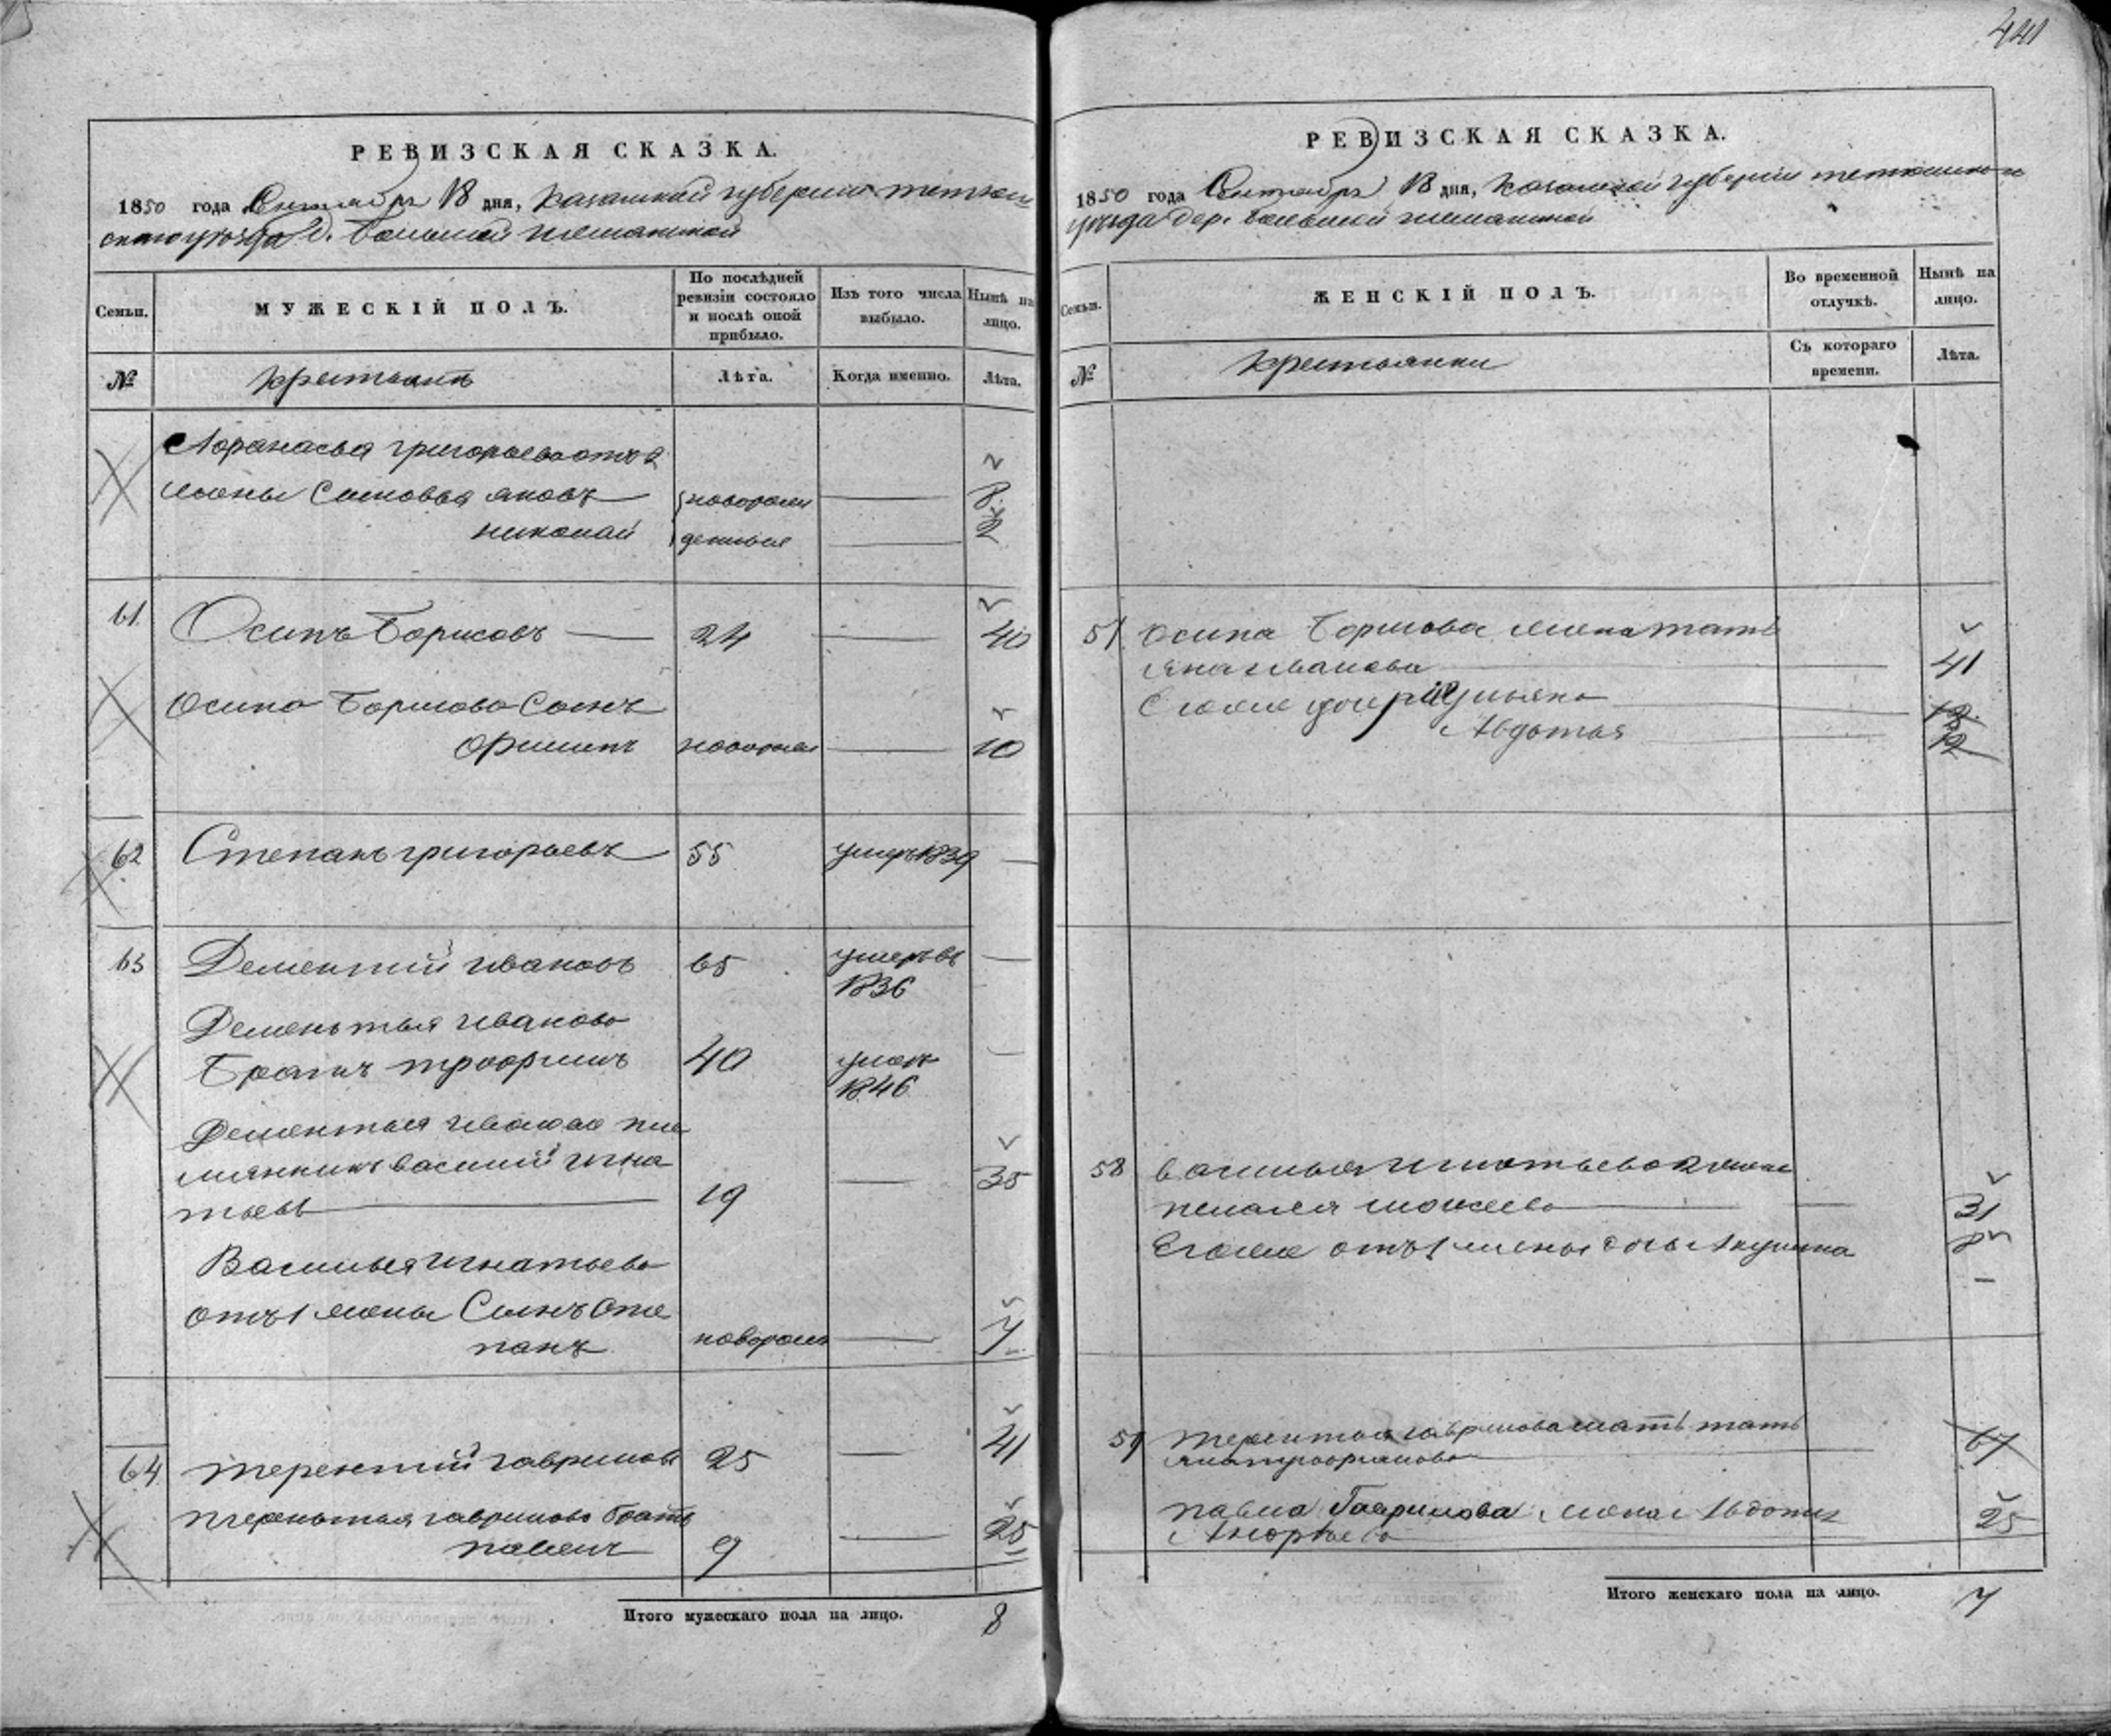 441
РЕВИЗСКАЯ СКАЗКА.
1850 года Сентября 18 дня, Казанской губернии тетюш
скаго уезда д. Большой
Семьи.
МУЖЕСКІЙ ПОЛЪ.
По послѣдней ревизіи состояло и послѣ оной прибыло.
Изъ того числа выбыло.
Нынѣ на лицо.
№
крестьянъ
Лѣта.
Когда именно.
Лѣта.
Афанасья григорьева отъ 2
жены Сыновья яковъ новорож 8
николай денныя 2
61 Осипъ Борисовъ 24 40
Осипа Борисова Сынъ
Филипъ новорож 10
62 Степанъ григорьевъ 55 умеръ 1839
63 Дементий ивановъ 65 умеръ въ
1836
Дементья иванова
Братъ трофимъ 40 умеръ
1846
Дементья иванова пле
мянникъ василий игна
тьевъ 19 35
Василья игнатьева
отъ 1 жены Сынъ Сте
панъ новорож 7
64 терентий гавриловъ 25 41
терентья гаврилова братъ
павелъ 9 25
Итого мужескаго пола на лицо. 8
РЕВИЗСКАЯ СКАЗКА.
1850 года Сентября 18 дня, Казанской губернии тетюшскаго
уезда дер. Большой
Семьи.
ЖЕНСКІЙ ПОЛЪ.
Во временной отлучкѣ.
Нынѣ на лицо.
№
крестьянки
Съ котораго времени.
Лѣта.
Осипа Борисова жена тать
яна иванова 41
Его дочери Ульяна
Авдотья 12
58 василья игнатьева жена
пелагея моисеева 31
Его отъ 1 жены дочь Акулина 8
терентья гаврилова мать тать
яна трофимова 67
павла Гаврилова жена Авдотья
25
Итого женскаго пола на лицо. 7